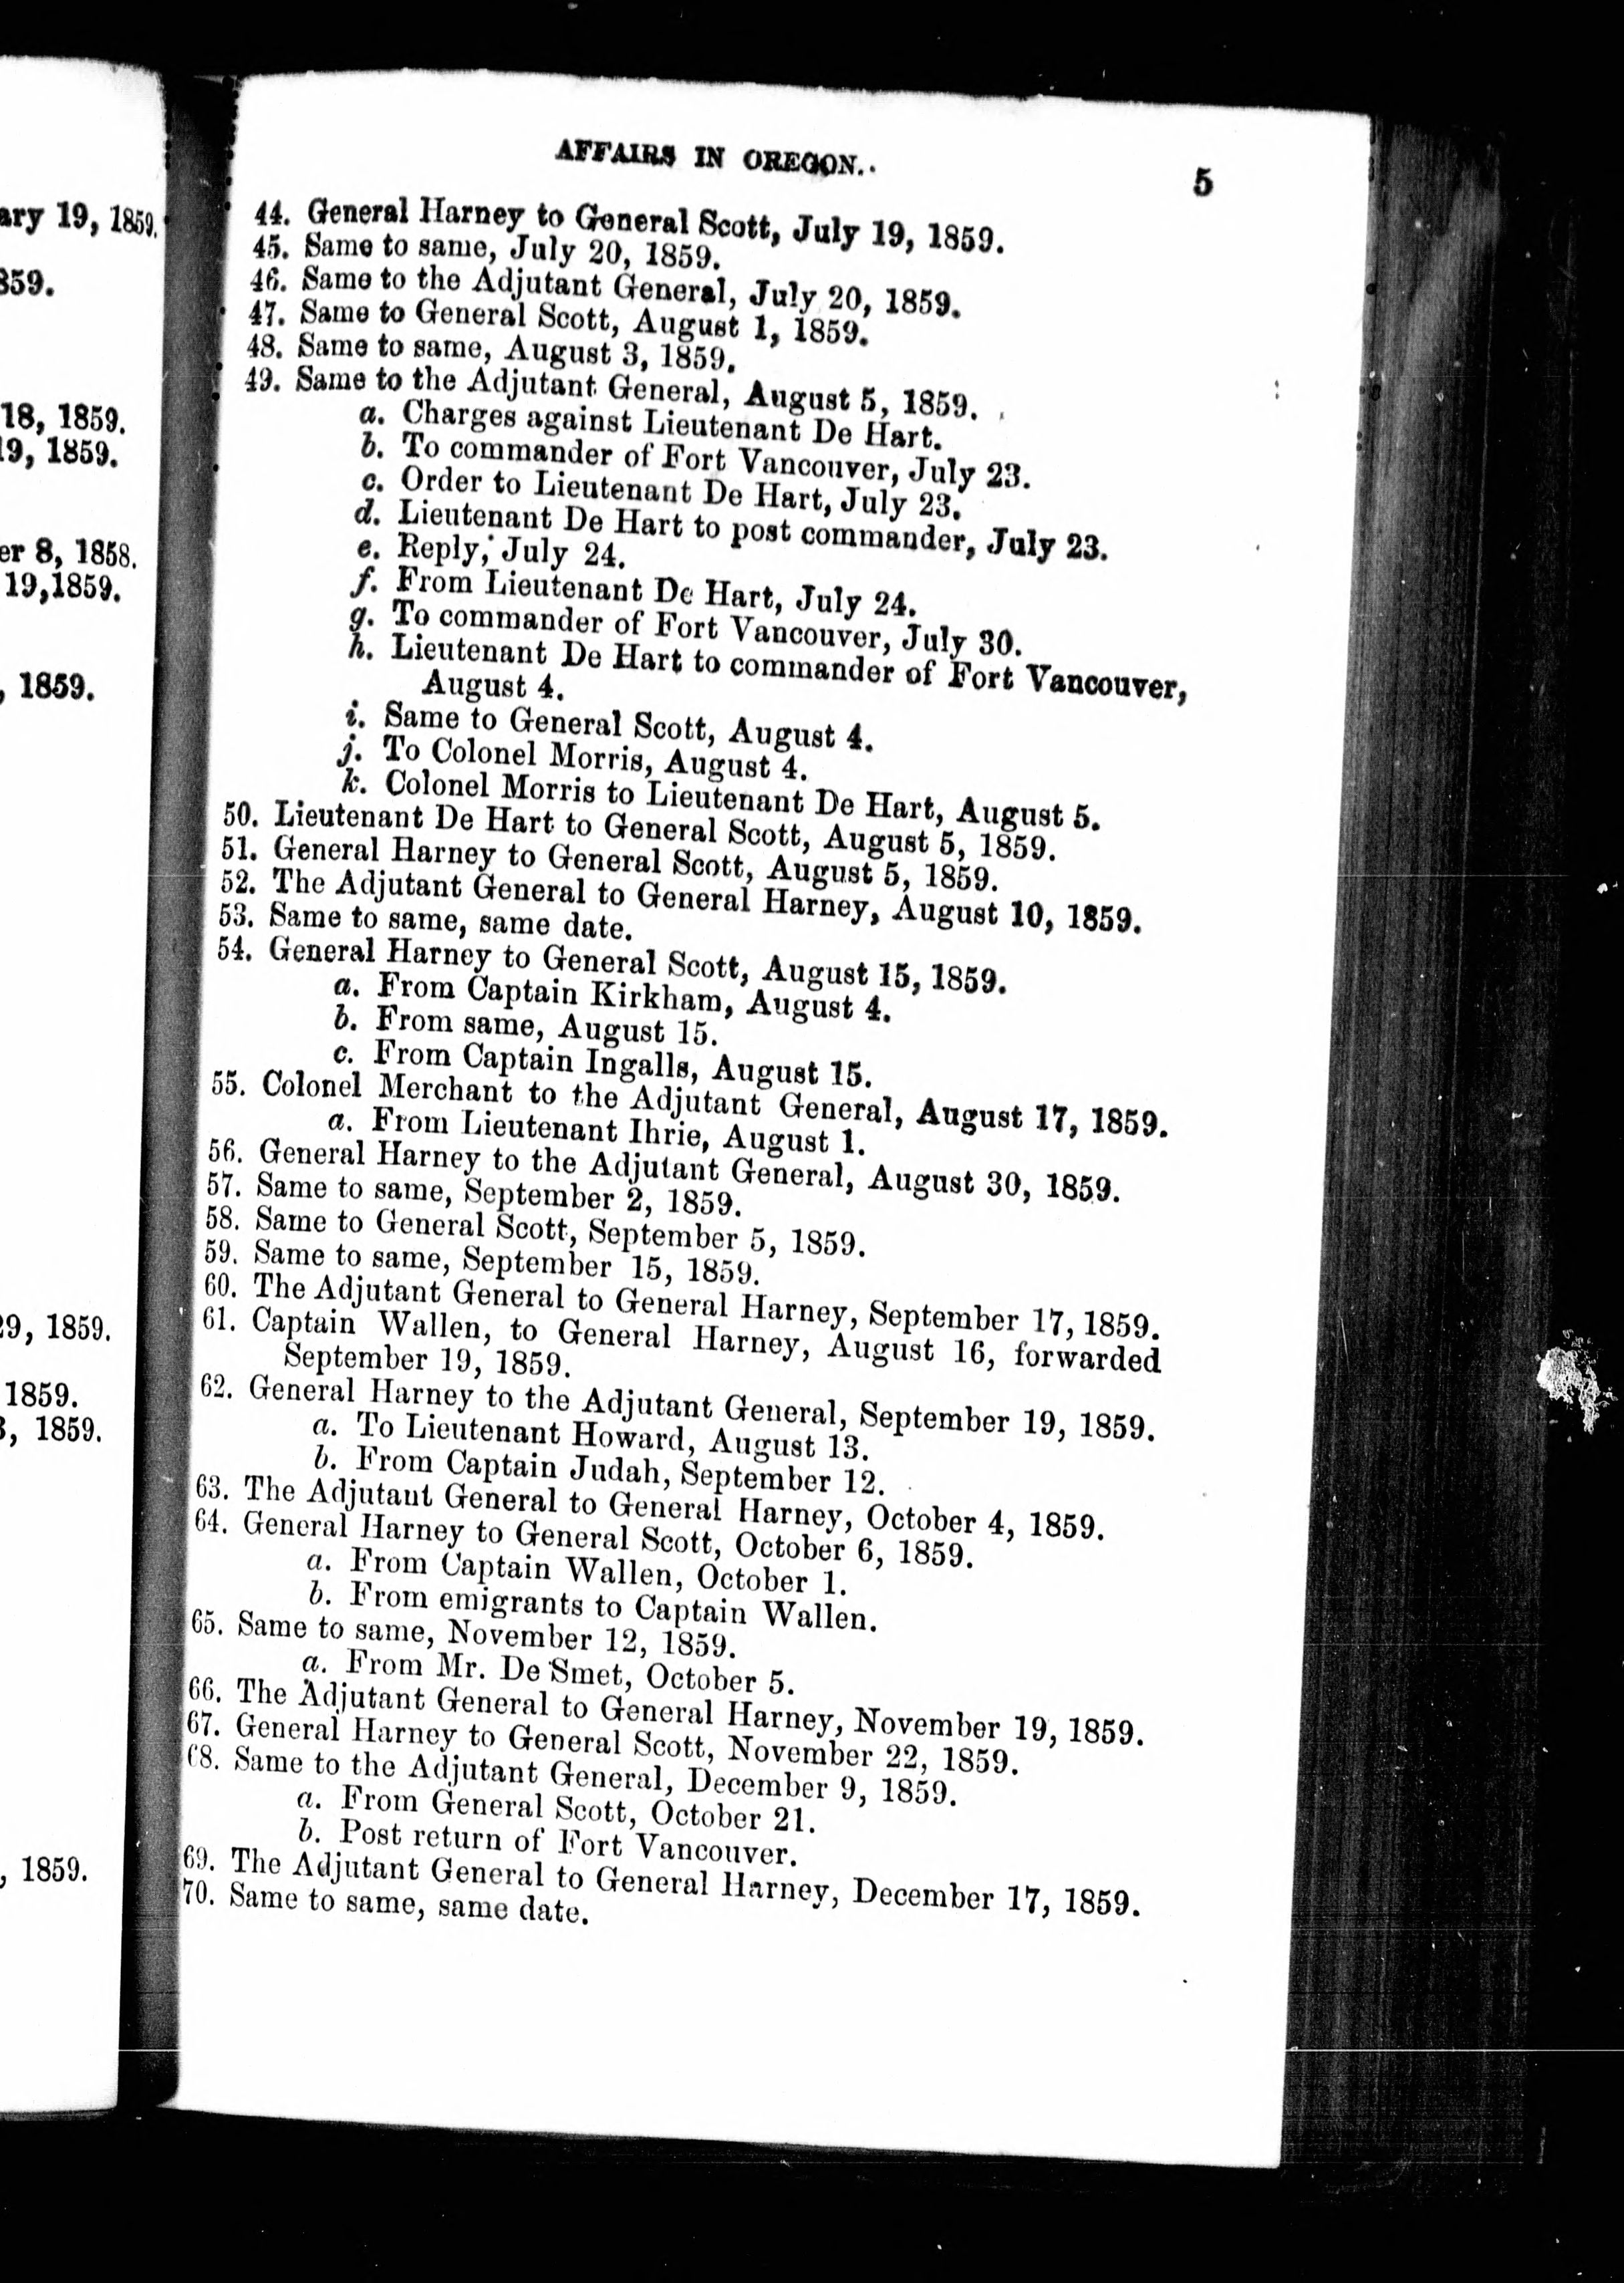 ary 19, 1859.
859.
18, 1859.
19, 1859.
er 8, 1858.
19,1859.
, 1859.
29, 1859.
1859.
3, 1859.
, 1859.
AFFAIRS IN OREGON.
5
44. General Harney to General Scott, July 19, 1859.
45. Same to same, July 20, 1859.
46. Same to the Adjutant General, July 20, 1859.
47. Same to General Scott, August 1, 1859.
48. Same to same, August 3, 1859.
49. Same to the Adjutant General, August 5, 1859.
a. Charges against Lieutenant De Hart.
b. To commander of Fort Vancouver, July 23.
c. Order to Lieutenant De Hart, July 23.
d. Lieutenant De Hart to post commander, July 23.
e. Reply, July 24.
f. From Lieutenant De Hart, July 24.
g. To commander of Fort Vancouver, July 30.
h. Lieutenant De Hart to commander of Fort Vancouver,
August 4.
i. Same to General Scott, August 4.
j. To Colonel Morris, August 4.
k. Colonel Morris to Lieutenant De Hart, August 5.
50. Lieutenant De Hart to General Scott, August 5, 1859.
51. General Harney to General Scott, August 5, 1859.
52. The Adjutant General to General Harney, August 10, 1859.
53. Same to same, same date.
54. General Harney to General Scott, August 15, 1859.
a. From Captain Kirkham, August 4.
b. From same, August 15.
c. From Captain Ingalls, August 15.
55. Colonel Merchant to the Adjutant General, August 17, 1859.
a. From Lieutenant Ihrie, August 1.
56. General Harney to the Adjutant General, August 30, 1859.
57. Same to same, September 2, 1859.
58. Same to General Scott, September 5, 1859.
59. Same to same, September 15, 1859.
60. The Adjutant General to General Harney, September 17, 1859.
61. Captain Wallen, to General Harney, August 16, forwarded
September 19, 1859.
62. General Harney to the Adjutant General, September 19, 1859.
a. To Lieutenant Howard, August 13.
b. From Captain Judah, September 12.
63. The Adjutant General to General Harney, October 4, 1859.
64. General Harney to General Scott, October 6, 1859.
a. From Captain Wallen, October 1.
b. From emigrants to Captain Wallen.
65. Same to same, November 12, 1859.
a. From Mr. De Smet, October 5.
66. The Adjutant General to General Harney, November 19, 1859.
67. General Harney to General Scott, November 22, 1859.
68. Same to the Adjutant General, December 9, 1859.
a. From General Scott, October 21.
b. Post return of Fort Vancouver.
69. The Adjutant General to General Harney, December 17, 1859.
70. Same to same, same date.